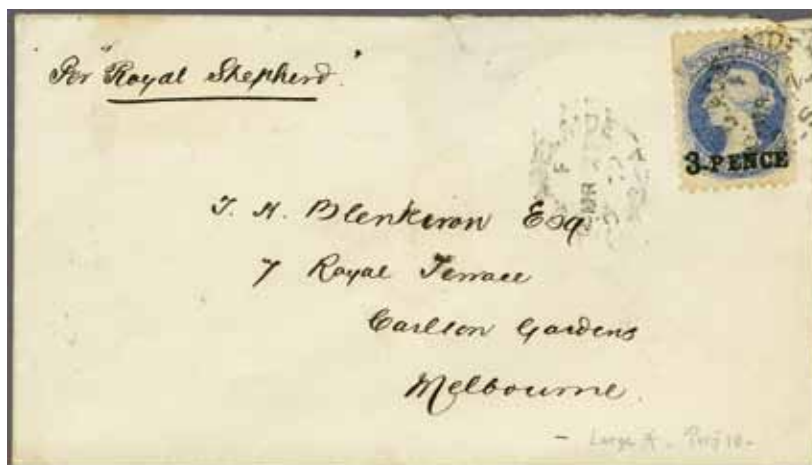 Per "Royal Shepherd"
3-PENCE
T. H. Blenkiron Esq
7 Royal Terrace
Carlton Gardens
Melbourne.
- Large